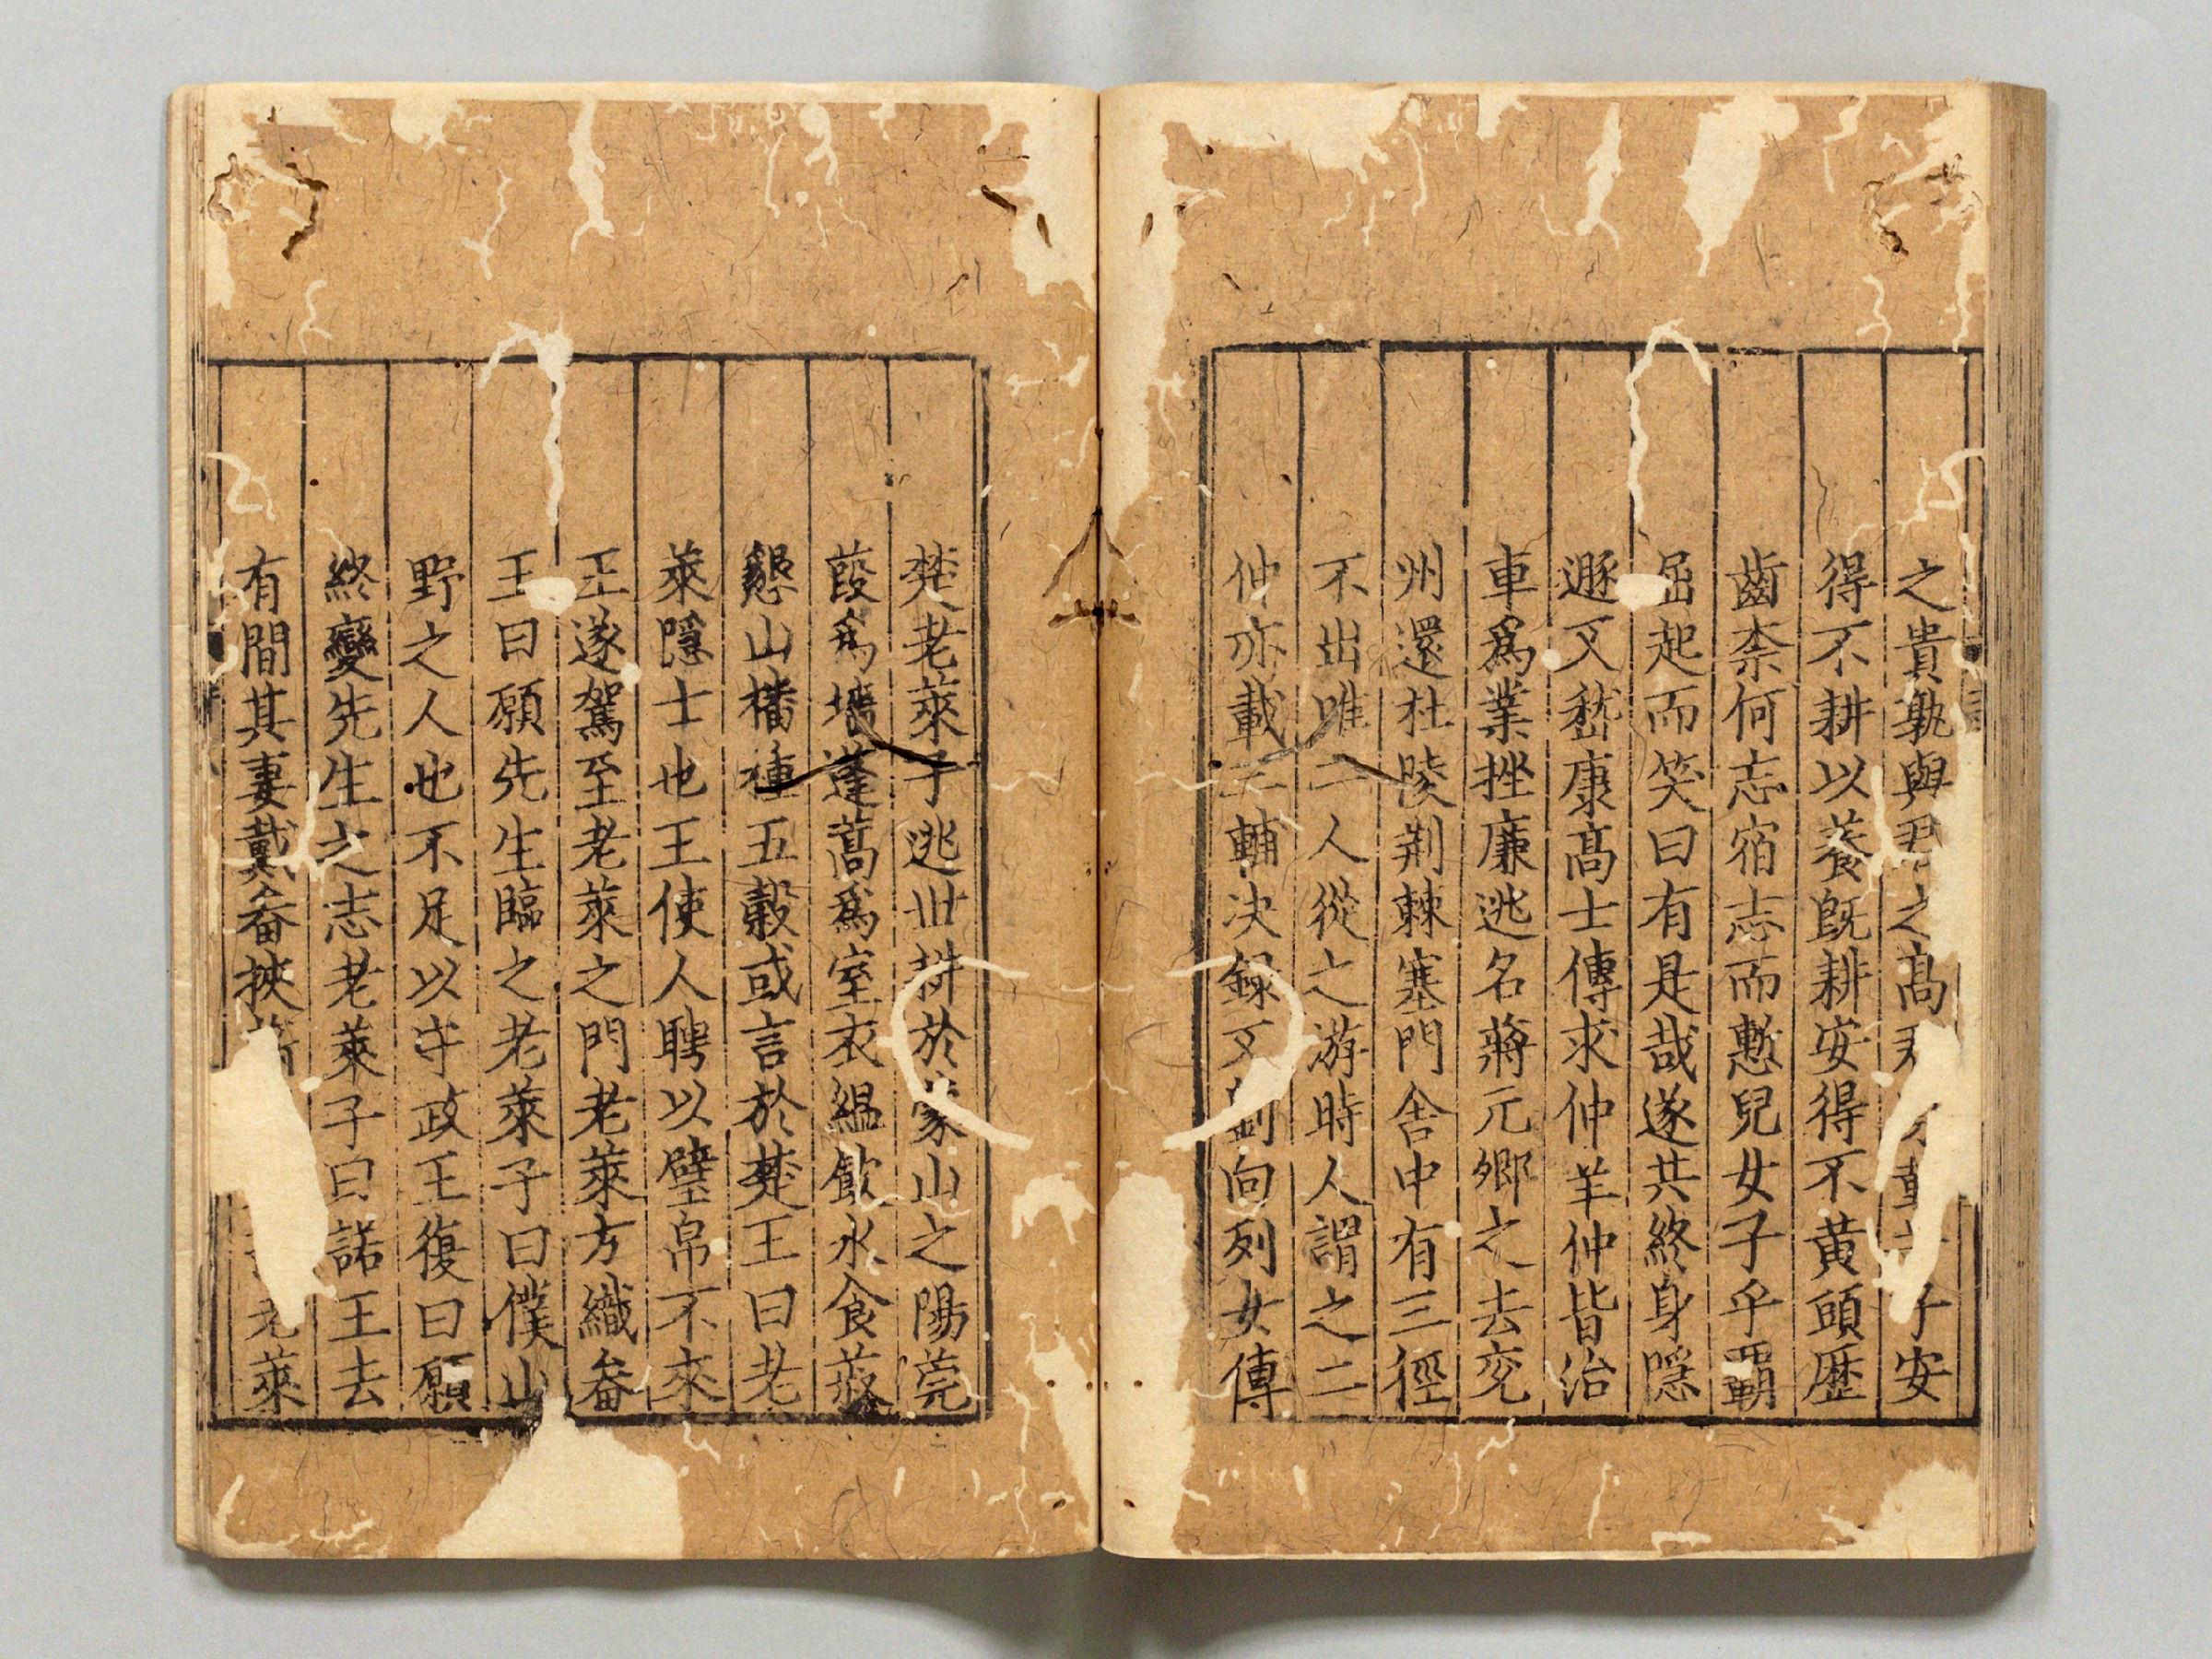 之貴孰與君之高君
子安
得不耕以養旣耕安得不黄頭歷
齒柰何忘宿志而慙兒女子乎霸
屈起而笑曰有是哉遂共終身隱
遯又嵇康高士傳求仲羊仲皆治
車爲業挫廉逃名蔣元卿之去兖
州還杜陵荆棘塞門舍中有三徑
不出唯二人從之游時人謂之二
仲亦載三輔决録又劉向列女傳
楚老萊子逃世耕於蒙山之陽莞
葭爲墻蓬蒿爲室衣緼飲水食菽
墾山播種五穀或言於楚王曰老
萊隱士也王使人聘以璧帛不來
王遂駕至老萊之門老萊方織畚
王曰願先生臨之老萊子曰僕山
野之人也不足以守政王復曰願
終變先生之志老萊子曰諾王去
有間其妻戴畚挾
老萊